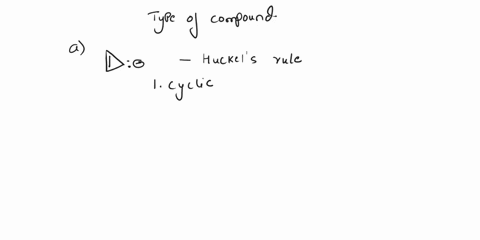 Type of compound.
a) :⊖ — Huckel's rule
1. cyclic